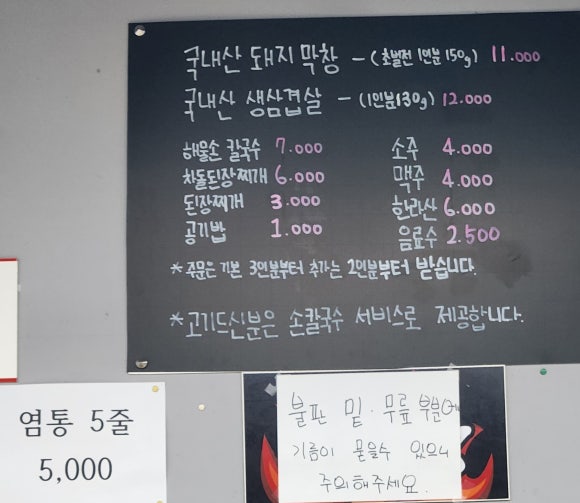 국내산 돼지 막창 - (초벌전 1인분 150g) 11.000
국내산 생삼겹살 - (1인분 130g) 12.000
해물손 칼국수 7.000
차돌된장찌개 6.000
된장찌개 3.000
공기밥 1.000
소주 4.000
맥주 4.000
한라산 6.000
음료수 2.500
* 주문은 기본 3인분부터 추가는 2인분부터 받습니다.
* 고기드신분은 손칼국수 서비스로 제공합니다.
염통 5줄
5,000
불판 밑·무릎 부분에
기름이 묻을수 있으니
주의해주세요